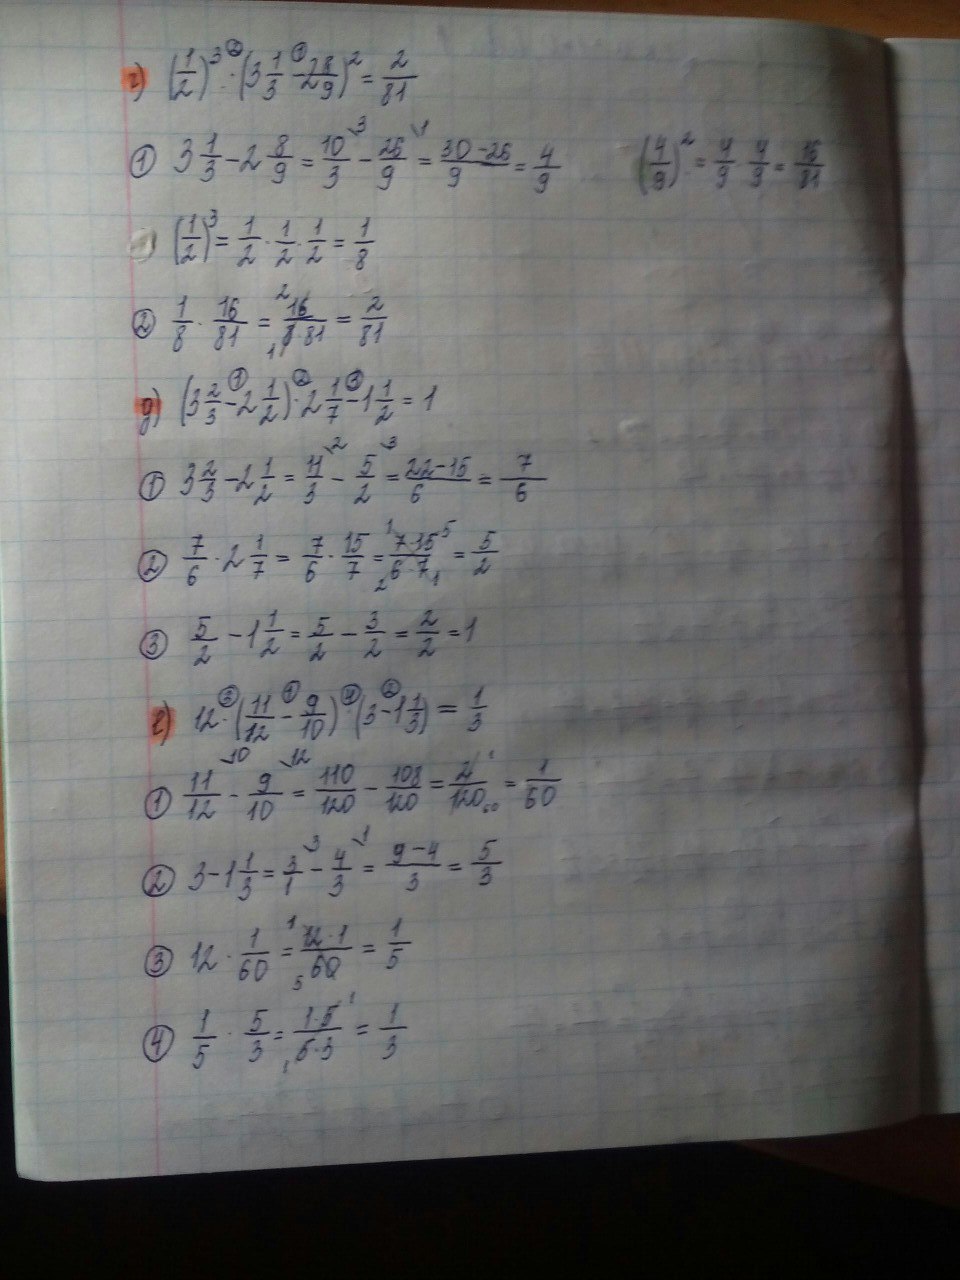 г) (1/2)³ · (3 1/3 - 2 8/9)² = 2/81
① 3 1/3 - 2 8/9 = 10/3 - 26/9 = (30-26)/9 = 4/9 (4/9)² = 4/9 · 4/9 = 16/81
(1/2)³ = 1/2 · 1/2 · 1/2 = 1/8
② 1/8 · 16/81 = 16/(8·81) = 2/81
д) (3 2/3 - 2 1/2) · 2 1/7 - 1 1/2 = 1
① 3 2/3 - 2 1/2 = 11/3 - 5/2 = (22-15)/6 = 7/6
② 7/6 · 2 1/7 = 7/6 · 15/7 = (7·15)/(6·7) = 5/2
③ 5/2 - 1 1/2 = 5/2 - 3/2 = 2/2 = 1
е) 12 · (11/12 - 9/10) · (3 - 1 1/3) = 1/3
① 11/12 - 9/10 = 110/120 - 108/120 = 2/120 = 1/60
② 3 - 1 1/3 = 3/1 - 4/3 = (9-4)/3 = 5/3
③ 12 · 1/60 = (12·1)/60 = 1/5
④ 1/5 · 5/3 = (1·5)/(5·3) = 1/3